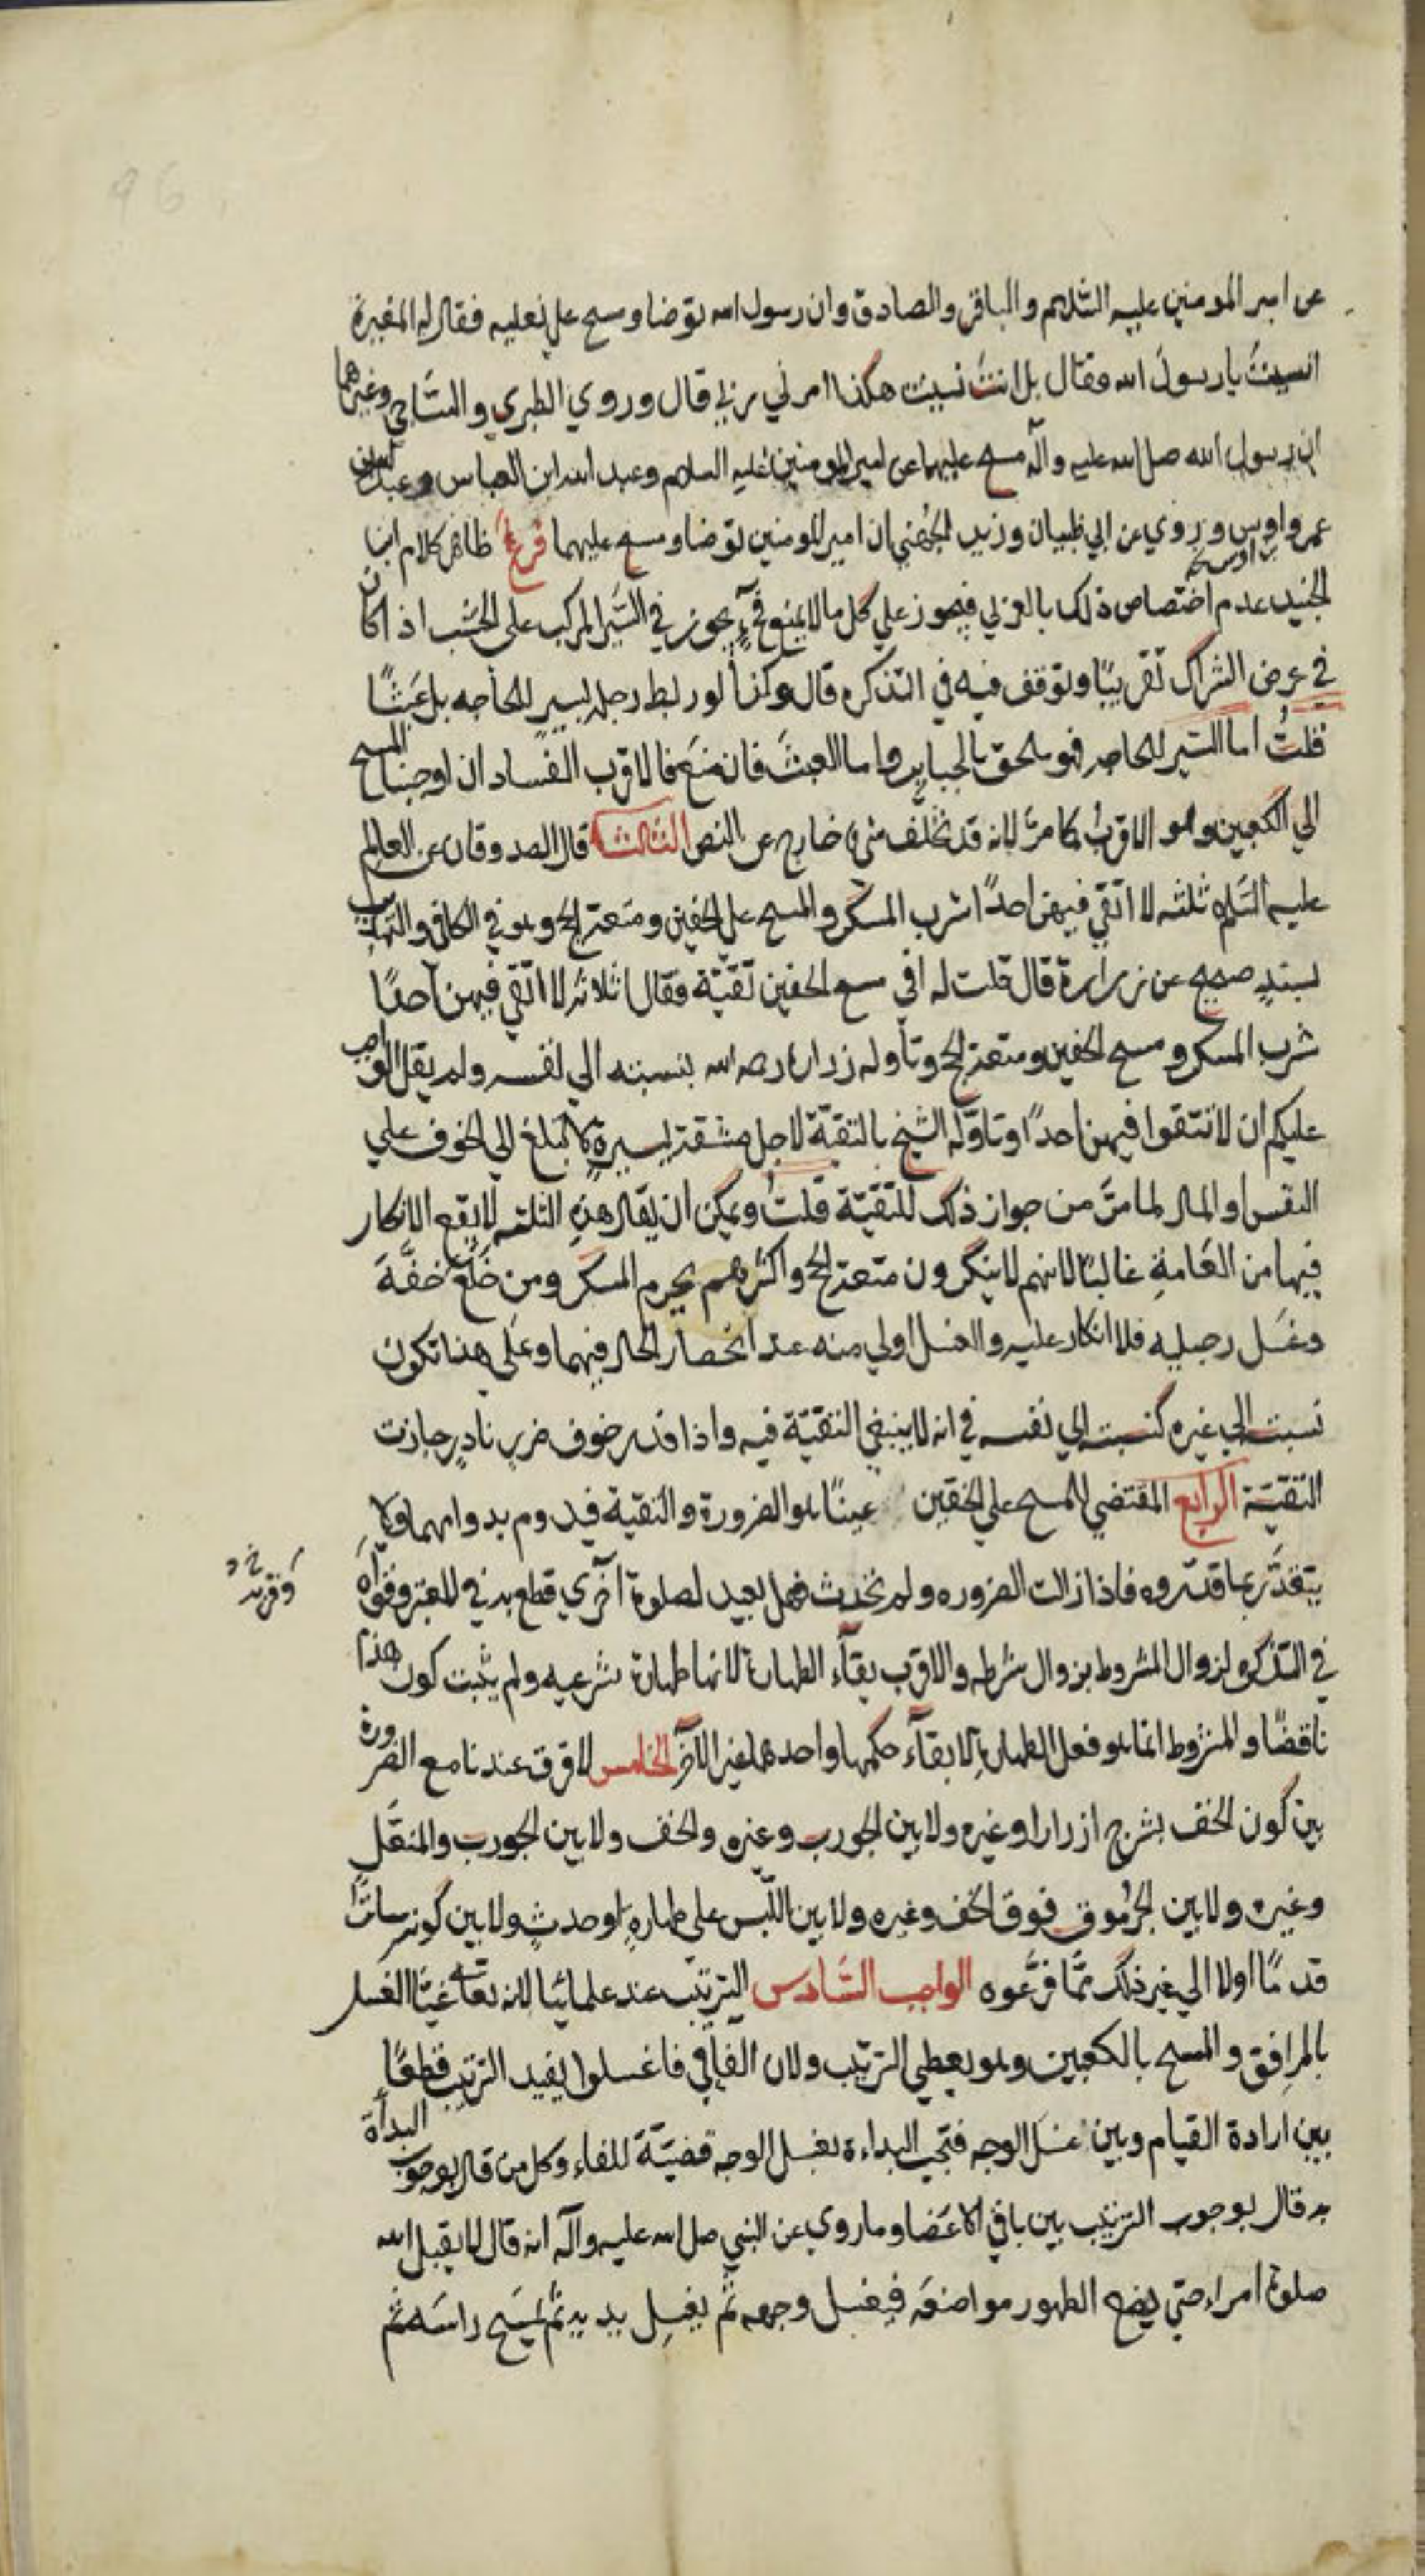 عن امير المومنين عليه السّلام والباقر والصادق وان رسول الله توضا ومسح على نعليه فقال له المغيرة
انسيتَ يا رسولَ الله فقال بل انتَ نسيت هكذا امرني ربّي قال وروي الطبري والسّاجي وغيرهما
ان رسول الله صلى الله عليه وآله مسح عليهما عن امير المومنين عليه السلام وعبد الله ابن العباس وعبد الله بن
عمر واوس وروي عن ابي ظبيان وزيد الجُهني ان امير المومنين توضا ومسح عليهما فرعٌ ظاهر كلام ابن
اوس
الجنيد عدم اختصاص ذلك بالعربي فيجوز علي كل ما لا يمنع فحٍ يجوز في السَّير المركب على الخشب اذ اكان
في عرض الشراك تقريبًا وتوقف فيه في التذكره قال وكذا لو ربط رجله بسيرٍ للحاجه بل عَبَثًا
قلتُ اما السّير للحاجه فهو ملحق بالجباير واما العبثَ فان مَنَع فالاقرب الفساد ان اوجبنا المسح
الي الكعبين وهو الاقربُ كما مرّ لانه قد تخلّف منه خارج عن النص الثالثة قال الصدوق ان عن العالم
عليه السّلم ثلثه لا اتّقي فيهن احدًا شرب المسكر والمسح علي الخفين ومتعة الحج وهو في الكافي والتهذيب
بسندٍ صحيح عن زرارة قال قلت له افي مسح الخفين تقيّة فقال ثلاثه لا اتّقي فيهن احدًا
شرب المسكر ومسح الخفين ومتعة الحج وتأوله زراره رحمه الله بنسبته الي نفسه ولم يقل الواجب
عليكم ان لا تتقوا فيهن احدًا وتاوّله الشيخ بالتقيّة لاجل مشقةٍ يسيرةٍ لا تبلغ الي الخوف علي
النفس او المال لما مرَّ من جواز ذلك للتقيّة قلتُ ويمكن ان يقال هذه الثلثه لا يقع الانكار
فيها من العَامةِ غالبًا لانهم لا ينكرون متعة الحج واكثرهم يحرم المسكر ومن خَلَع خفَّهَ
وغَسَل رجليه فلا انكار عليه والغسل اولي منه عند انحصار الحال فيهما وعَلَي هذا تكون
نسبته الي غيره كنسبته الي نفسه في انه لا ينبغي التقيّة فيه واذا قدر خوف ضررٍ نادرٍ جازت
التقيّة الرابع المقتضي للمسح علي الخفين عينًا هو الضرورة والتقية فيدوم بدوامهما ولا
يتقدّر بما قدّروه فاذا زالت الضروره ولم تحدث فهل يعيد لصلوة اخري قطع به في المعتبر وقواه
وقربه خ د
في التذكره لزوال المشروط بزوال شرطه والاقرب بقآء الطهارة لانها طهارة شرعيه ولم يثبت كون هذا
ناقضًا والمشروط انما هو فعل الطهارة لا بقآء حكمها واحدهما غير الآخر الخامس لا فرق عندنا مع الضرورة
بين كون الخف بشرج ازرار او غيره ولا بين الجورب وغيره والخف ولا بين الجورب والمنعّل
وغيره ولا بين الجرموق فوق الخف وغيره ولا بين اللّبس على طهارهٍ او حدثٍ ولا بين كونه ساترًا
قدمًا او لا الي غير ذلك ممّا فرَّعوه الواجب السّادس الترتيب عند علمائنا لانه تعالى غيّا الغسل
بالمرافق والمسح بالكعبين وهو يعطي الترتيب ولان الفآ في فاغسلوا يفيد الترتيب قطعًا
بين ارادة القيام وبين غسل الوجه فتجب البداءة بغسل الوجه قضيّة للفاء وكل من قال بوجوب البدأة
به قال بوجوب الترتيب بين باقي الاعضا وما روي عن النبي صلى الله عليه وآله انه قال لا يقبل الله
صلوة امرء حتي يضع الطهور مواضعَه فيغسل وجهه ثم يغسل يديه ثم يمسح راسَه ثم